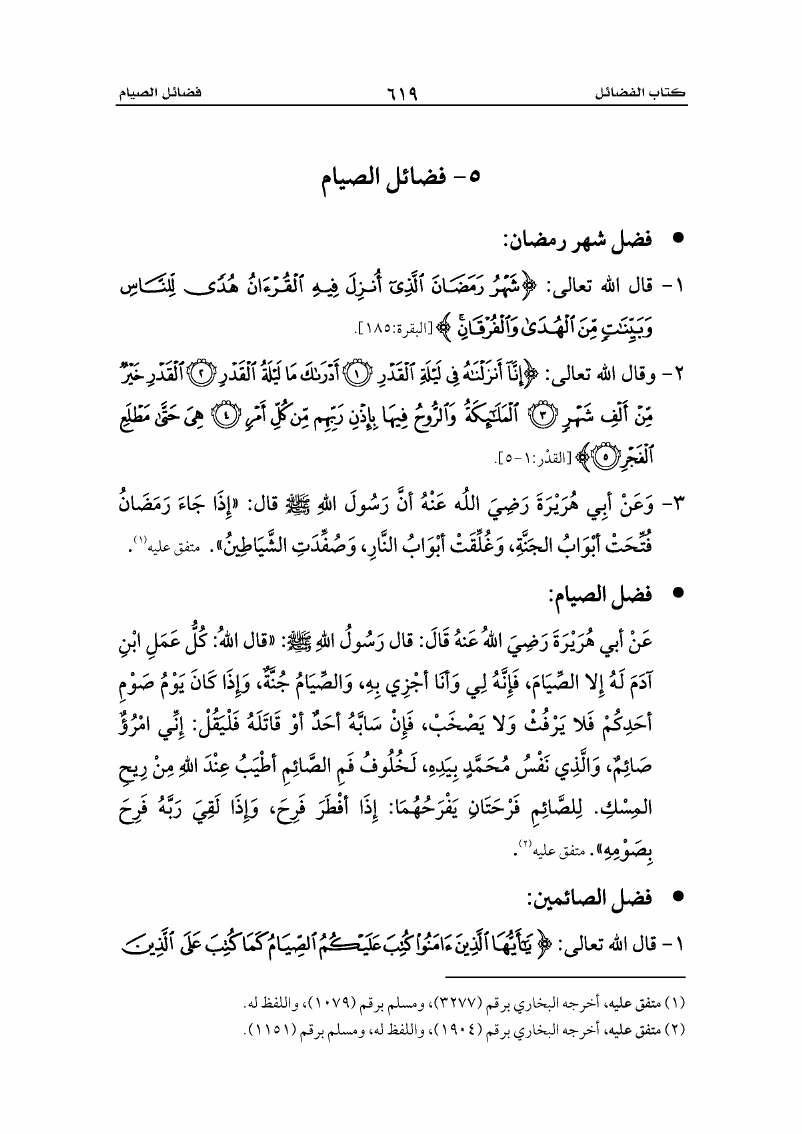 كتاب الفضائل ٦١٩ فضائل الصيام
٥- فضائل الصيام
• فضل شهر رمضان:
١- قال الله تعالى: ﴿شَهْرُ رَمَضَانَ الَّذِي أُنزِلَ فِيهِ الْقُرْءَانُ هُدًى لِّلنَّاسِ
وَبَيِّنَٰتٍ مِّنَ الْهُدَىٰ وَالْفُرْقَانِ ۚ﴾ [البقرة:١٨٥].
٢- وقال الله تعالى: ﴿إِنَّا أَنزَلْنَٰهُ فِي لَيْلَةِ الْقَدْرِ ۝١ أَدْرَىٰكَ مَا لَيْلَةُ الْقَدْرِ ۝٢ الْقَدْرِ خَيْرٌ
مِّنْ أَلْفِ شَهْرٍ ۝٣ الْمَلَٰٓئِكَةُ وَالرُّوحُ فِيهَا بِإِذْنِ رَبِّهِم مِّن كُلِّ أَمْرٍ ۝٤ هِيَ حَتَّىٰ مَطْلَعِ
الْفَجْرِ ۝٥﴾ [القدْر:١-٥].
٣- وَعَنْ أبِي هُرَيْرَةَ رَضِيَ اللَّه عَنْهُ أنَّ رَسُولَ اللهِ ﷺ قال: «إِذَا جَاءَ رَمَضَانُ
فُتِّحَتْ أبْوَابُ الجَنَّةِ، وَغُلِّقَتْ أبْوَابُ النَّارِ، وَصُفِّدَتِ الشَّيَاطِينُ». متفق عليه(١).
• فضل الصيام:
عَنْ أبي هُرَيْرَةَ رَضِيَ اللهُ عَنهُ قَالَ: قال رَسُولُ اللهِ ﷺ: «قال اللهُ: كُلُّ عَمَلِ ابْنِ
آدَمَ لَهُ إِلا الصِّيَامَ، فَإِنَّهُ لِي وَأنَا أجْزِي بِهِ، وَالصِّيَامُ جُنَّةٌ، وَإِذَا كَانَ يَوْمُ صَوْمِ
أحَدِكُمْ فَلا يَرْفُثْ وَلا يَصْخَبْ، فَإِنْ سَابَّهُ أحَدٌ أوْ قَاتَلَهُ فَلْيَقُلْ: إِنِّي امْرُؤٌ
صَائِمٌ، وَالَّذِي نَفْسُ مُحَمَّدٍ بِيَدِهِ، لَخُلُوفُ فَمِ الصَّائِمِ أطْيَبُ عِنْدَ اللهِ مِنْ رِيحِ
المِسْكِ. لِلصَّائِمِ فَرْحَتَانِ يَفْرَحُهُمَا: إِذَا أفْطَرَ فَرِحَ، وَإِذَا لَقِيَ رَبَّهُ فَرِحَ
بِصَوْمِهِ». متفق عليه(٢).
• فضل الصائمين:
١- قال الله تعالى: ﴿يَٰٓأَيُّهَا الَّذِينَ ءَامَنُوا كُتِبَ عَلَيْكُمُ الصِّيَامُ كَمَا كُتِبَ عَلَى الَّذِينَ
(١) متفق عليه، أخرجه البخاري برقم (٣٢٧٧)، ومسلم برقم (١٠٧٩)، واللفظ له.
(٢) متفق عليه، أخرجه البخاري برقم (١٩٠٤)، واللفظ له، ومسلم برقم (١١٥١).